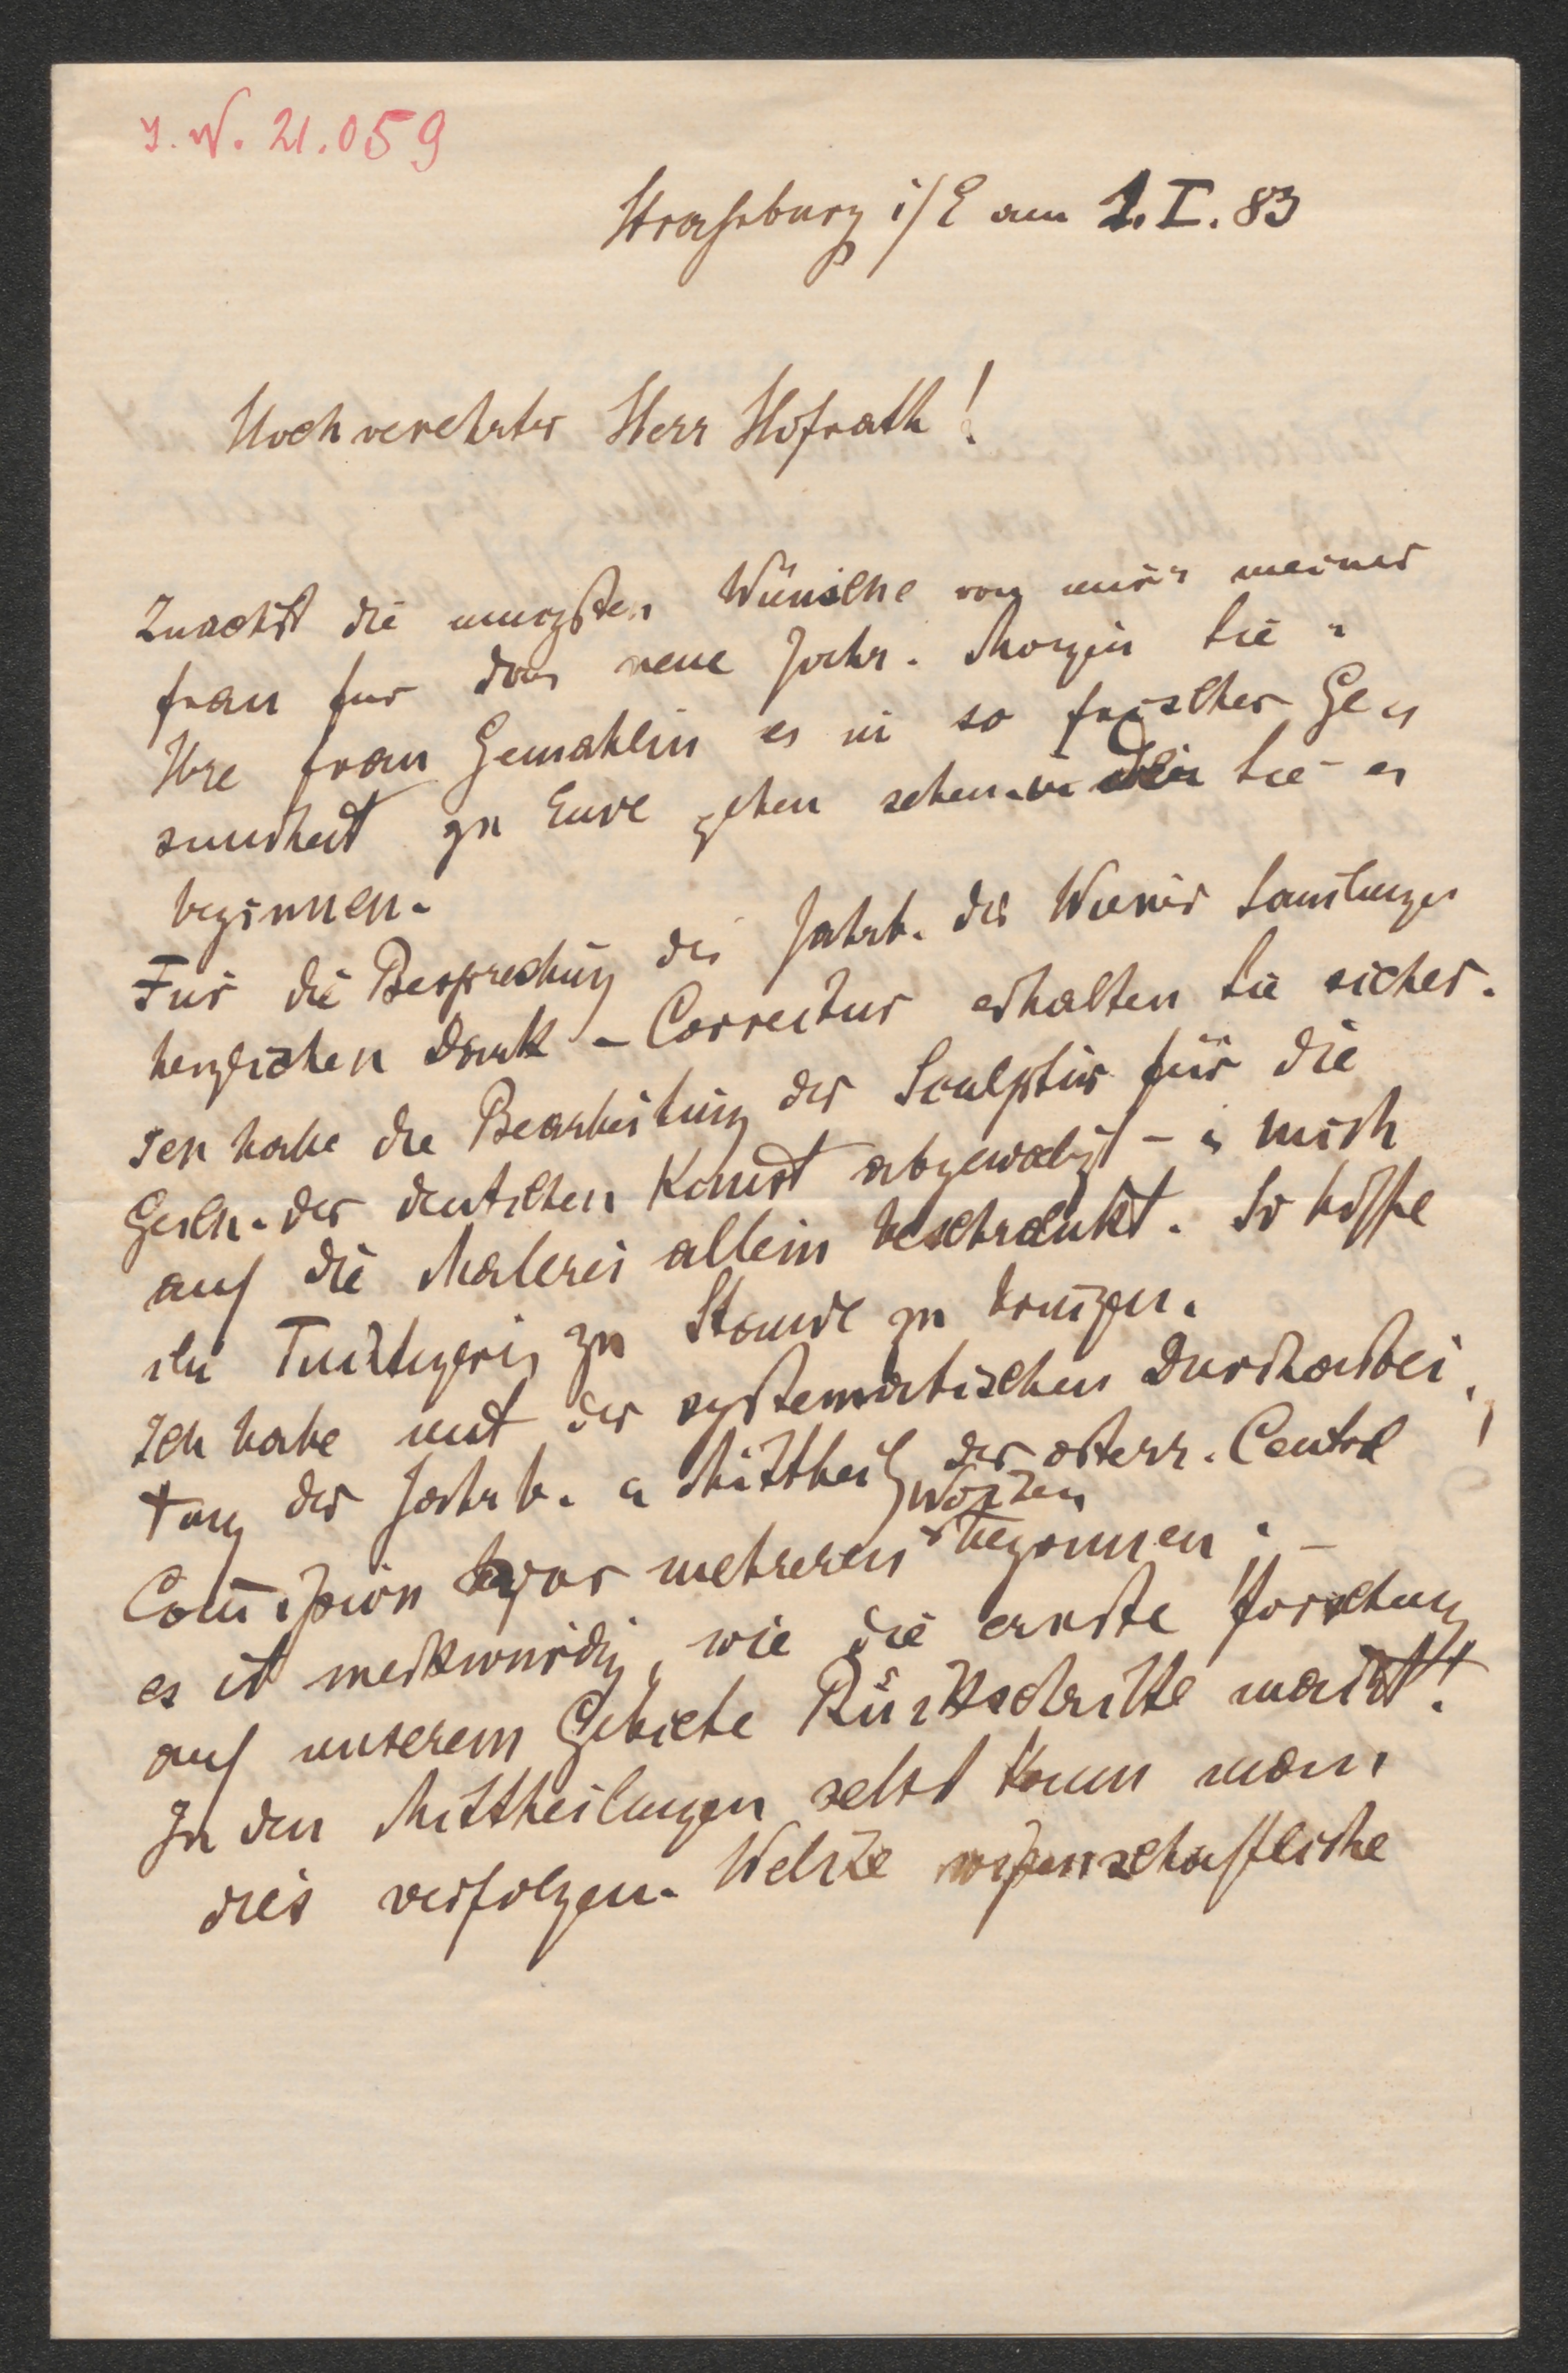 I. N. 21.059
Straßburg i/E am 1. I. 83
Hochverehrter Herr Hofrath!
Zunächst die innigsten Wünsche von mir u meiner
Frau für das neue Jahr. Mögen Sie u
Ihre Frau Gemahlin es in so frischer Ge-
sundheit zu Ende gehen sehen in der Sie es
beginnen.
Für die Besprechung des Jahrb. der Wiener Samlungen
herzlichen Dank – Correctur erhalten Sie sicher.
Ich habe die Bearbeitung der Sculptur für die
Gesch. der deutschen Kunst abgewälzt – u mich
auf die Malerei allein beschränkt. So hoffe
ich Tüchtiges zu Stande zu bringen.
Ich habe mit der systematischen Durcharbei-
tung der Jahrb. u Mittheilg der österr. Central
Com̄ission vor mehreren Wochen begonnen;–
es ist merkwürdig, wie die ernste Forschung
auf unserem Gebiete Rückschritte macht!
In den Mittheilungen selbst kann man
dies verfolgen. Welche wißenschaftliche